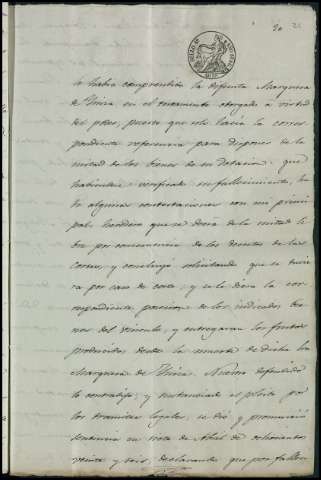 20
lo habia comprendido la difunta Marquesa
de en el testamento otorgado a virtud
del poder, puesto que solo hacia la corres
pondiente referencia para disponer de la
mitad de los bienes de su dotacion: que
habiendose verificado su fallecimiento, hu
bo algunas contestaciones con mi princi
pal, heredero que se decia de la mitad li
bre por consecuencia de los decretos de las
Cortes; y concluyó solicitando que se tuvie
ra por caso de corte, y se le diera la cor
respondiente posesion de los indicados bie
nes del vinculo, y entregaran los frutos
producidos desde la muerte de dicha la
Marquesa de Nuestro defendido
lo contradijo; y sustanciado el pleito por
los tramites legales, se dió y pronunció
sentencia en trece de Abril de ochocientos
veinte y seis, declarando que por falleci